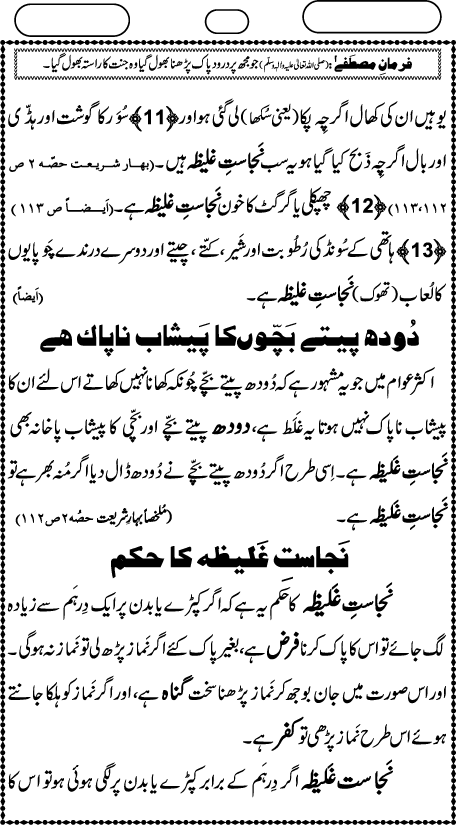 فرمانِ مصطفےٰ: (صلی اللہ تعالیٰ علیہ والہٖ وسلّم) جو مجھ پر درود پاک پڑھنا بھول گیا وہ جنت کا راستہ بھول گیا۔
یوہیں ان کی کھال اگرچِہ پکا (یعنی سُکھا) لی گئی ہو اور ﴿11﴾ سُوَر کا گوشت اور ہڈّی
اور بال اگرچِہ ذَبح کیا گیا ہو یہ سب نَجاستِ غلیظہ ہیں ۔ (بہار شریعت حصّہ ۲ ص
۱۱۲،۱۱۳) ﴿12﴾ چھپکلی یا گرگٹ کا خون نَجاستِ غلیظہ ہے۔ (اَیضاً ص ۱۱۳)
﴿13﴾ ہاتھی کے سُونڈ کی رُطوبت اور شَیر، کتّے، چیتے اور دوسرے درندے چَوپایوں
کا لُعاب (تھوک) نَجاستِ غلیظہ ہے۔ (اَیضاً)
دُودھ پیتے بَچّوں کا پَیشاب ناپاک ھے
اکثر عوام میں جو یہ مشہور ہے کہ دُودھ پیتے بچّے چُونکہ کھانا نہیں کھاتے اس لئے ان کا
پیشاب ناپاک نہیں ہوتا یہ غَلَط ہے، دودھ پیتے بچّے اور بچّی کا پیشاب پاخانہ بھی
نَجاستِ غلیظہ ہے۔ اِسی طرح اگر دُودھ پیتے بچّے نے دُودھ ڈال دیا اگر مُنہ بھر ہے تو
نَجاستِ غلیظہ ہے۔ (مُلخصاً بہارِ شریعت حصّہ ۲ ص ۱۱۲)
نَجاست غَلیظہ کا حکم
نَجاستِ غلیظہ کا حَکم یہ ہے کہ اگر کپڑے یا بدن پر ایک دِرہَم سے زیادہ
لگ جائے تو اس کا پاک کرنا فَرض ہے، بغیر پاک کئے اگر نَماز پڑھ لی تو نَماز نہ ہوگی۔
اور اس صورت میں جان بوجھ کر نَماز پڑھنا سخت گناہ ہے، اور اگر نَماز کو ہلکا جانتے
ہوئے اس طرح نَماز پڑھی تو کفر ہے۔
نَجاستِ غلیظہ اگر دِرہَم کے برابر کپڑے یا بدن پر لگی ہوئی ہو تو اس کا